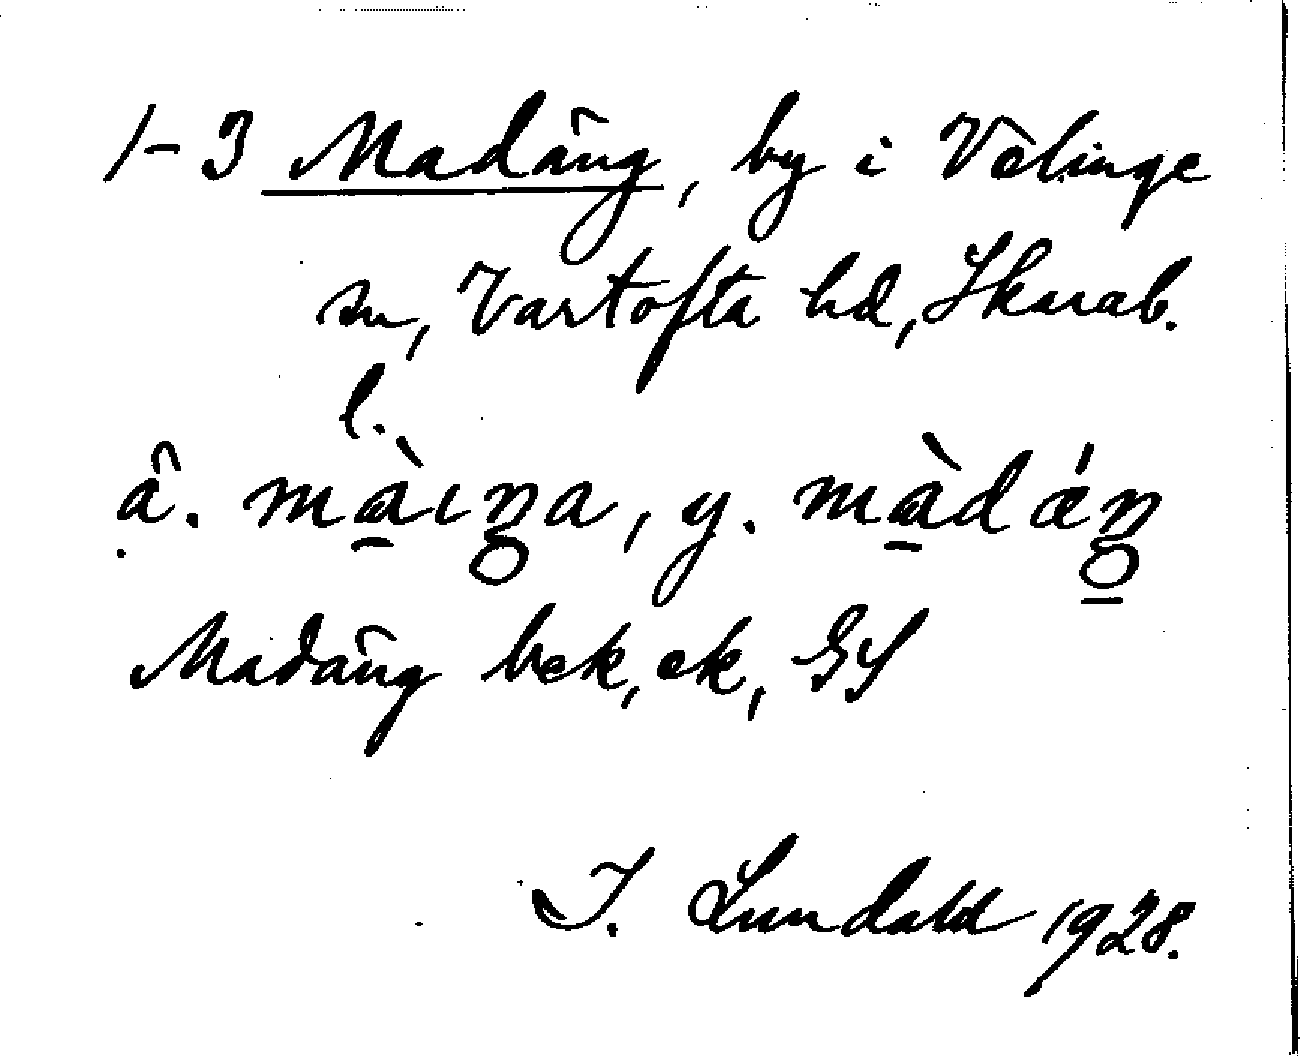 1-3 Madäng, by i Välinge
sn, Vartofta hd, Skarab.
l.
ä. màıŋa, y. màdǽŋ
Madäng bek, ek, GS
I. Lundahl 1928.